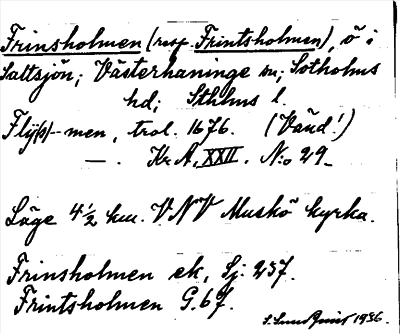 Frinsholmen (resp. Frintsholmen), ö i
Saltsjön; Västerhaninge sn; Sotholms
hd; Sthlms l.
Flÿ(s)-men, trol. 1676. (Vänd!)
—. Kr. A. XXII. No 29.
Läge 4 1/2 km. VNV Muskö kyrka.
Frinsholmen ek, Sj. 237.
Frintsholmen G. 67.
S. Sundquist 1936.